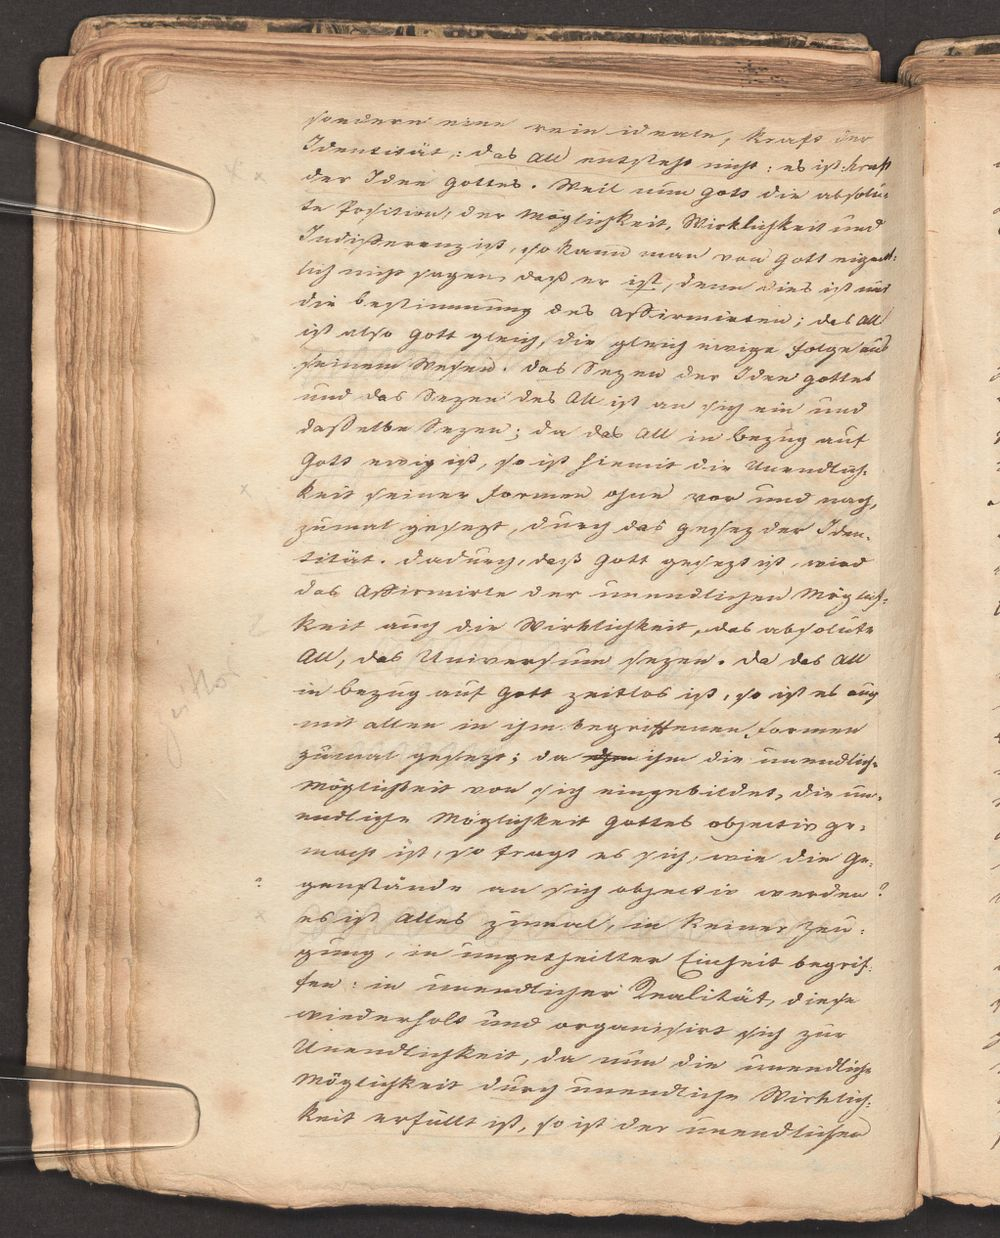 sondern eine rein ideale, kraft der
Identität: das All entsteht nicht: es ist kraft
der Idee Gottes. Weil nun Gott die absolu-
te Position, der Möglichkeit, Wirklichkeit und
Indifferenz ist, so kann man von Gott eigent-
lich nicht sagen, daß er ist, denn dies ist nur
die bestimmung des Affirmirten; das All
ist also Gott gleich, die gleich ewige folge aus
seinem Wesen. das Sezen der Idee Gottes
und das Sezen des All ist an sich ein und
dasselbe Sezen; da das All in bezug auf
Gott ewig ist, so ist hiemit die Unendlich-
keit seiner formen ohne vor und nach,
zumal gesezt, durch das gesez der Iden-
tität. dadurch, daß Gott gesezt ist, wird
das Affirmirte der unendlichen Möglich-
keit auch die Wirklichkeit, das absolute
All, das Universum sezen. da das All
in bezug auf Gott zeitlos ist, so ist es auch
mit allen in ihm begriffenen formen
zumal gesezt; da ihm die unendlich-
Möglichkeit von sich eingebildet, die un-
endliche Möglichkeit Gottes objectiv ge-
macht ist, so fragt es sich, wie die Ge-
genstände an sich objectiv werden?
es ist Alles zumal, in keiner Zeu-
gung, in ungetheilter Einheit begrif-
fen: in unendlicher Realität, diese
wiederholt und organisirt sich zur
Unendlichkeit, da nun die unendliche
Möglichkeit durch unendliche Wirklich-
keit erfüllt ist, so ist der unendlichen
zeitlos